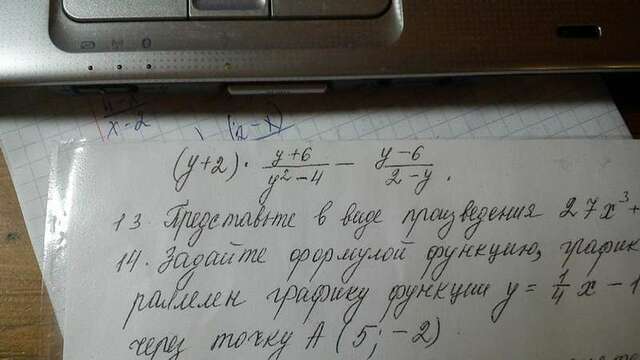 x-2
(2-x)
(y+2) · \frac{y+6}{y²-4} - \frac{y-6}{2-y}.
13. Представьте в виде произведения 27x³+
14. Задайте формулой функцию, график
раллелен графику функции y = \frac{1}{4}x - 1
через точку A (5; -2)